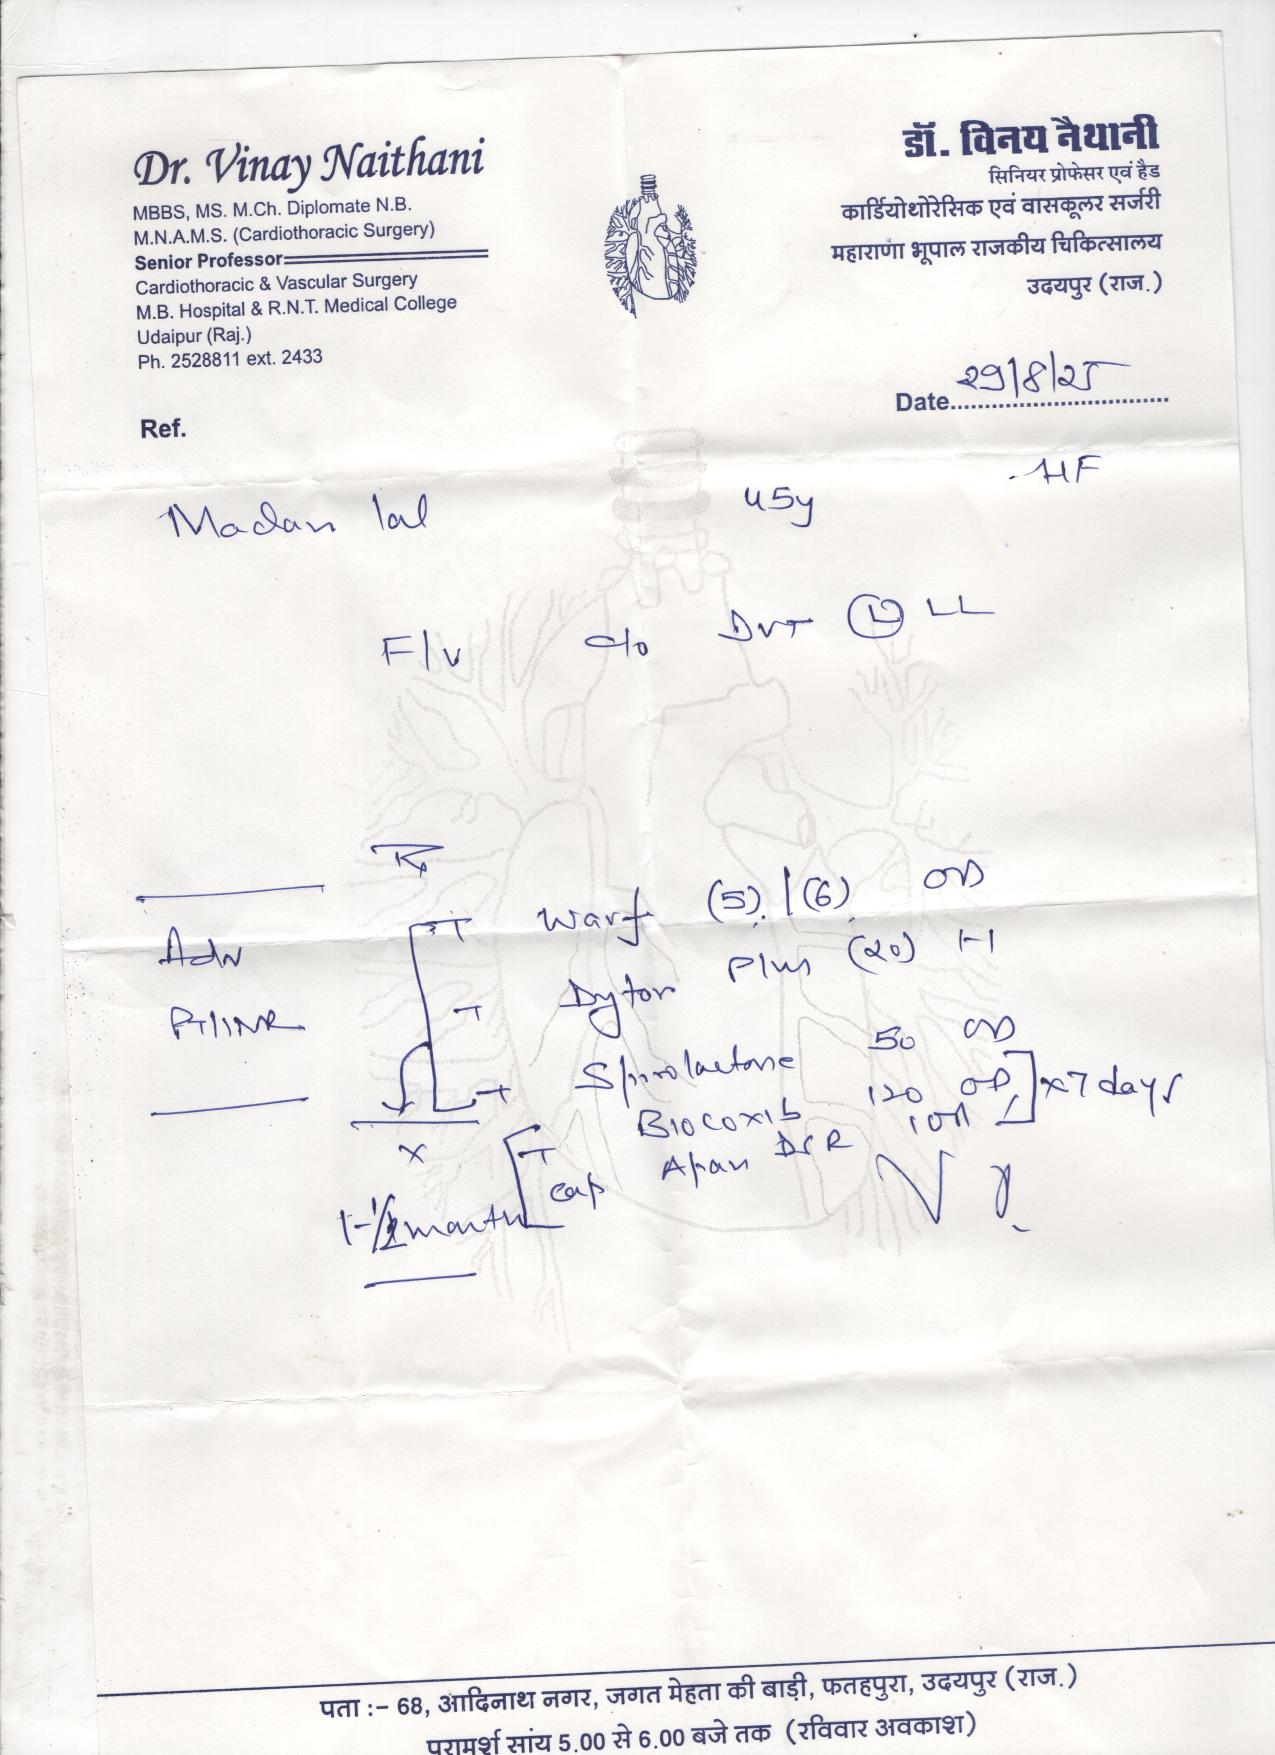 Dr. Vinay Naithani
MBBS, MS. M.Ch. Diplomate N.B.
M.N.A.M.S. (Cardiothoracic Surgery)
Senior Professor
Cardiothoracic & Vascular Surgery
M.B. Hospital & R.N.T. Medical College
Udaipur (Raj.)
Ph. 2528811 ext. 2433
डॉ. विनय नैथानी
सिनियर प्रोफेसर एवं हैड
कार्डियोथोरेसिक एवं वासकूलर सर्जरी
महाराणा भूपाल राजकीय चिकित्सालय
उदयपुर (राज.)
Date 29/8/25
Ref.
HF
Madan lal 45y
F/v c/o DVT (L) LL
Rx
T Warf (5) / (6) OD
Adv
T Dytor Plus (20) 1-1
PT/INR
T Spirolactone 50 OD
T Biocoxib 120 OD
Cap Apan DSR 1 OD
] x 7 days
x
1-1/2 month
पता :- 68, आदिनाथ नगर, जगत मेहता की बाड़ी, फतहपुरा, उदयपुर (राज.)
परामर्श सांय 5.00 से 6.00 बजे तक (रविवार अवकाश)